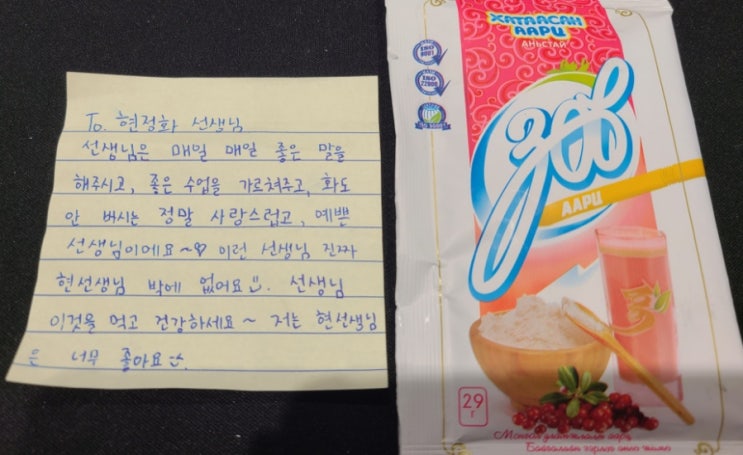 To. 현정화 선생님
선생님은 매일 매일 좋은 말을
해주시고, 좋은 수업을 가르쳐주고, 화도
안 버시는 정말 사랑스럽고, 예쁜
선생님이에요~♡ 이런 선생님 진짜
현선생님 밖에 없어요. 선생님
이것을 먹고 건강하세요~ 저는 현선생님
은 너무 좋아요.
ХАТААСАН
ААРЦ
АНЬСТАЙ
ISO
9001
ISO
22000
зөв
ААРЦ
29
г
Монгол уламжлалт аарц